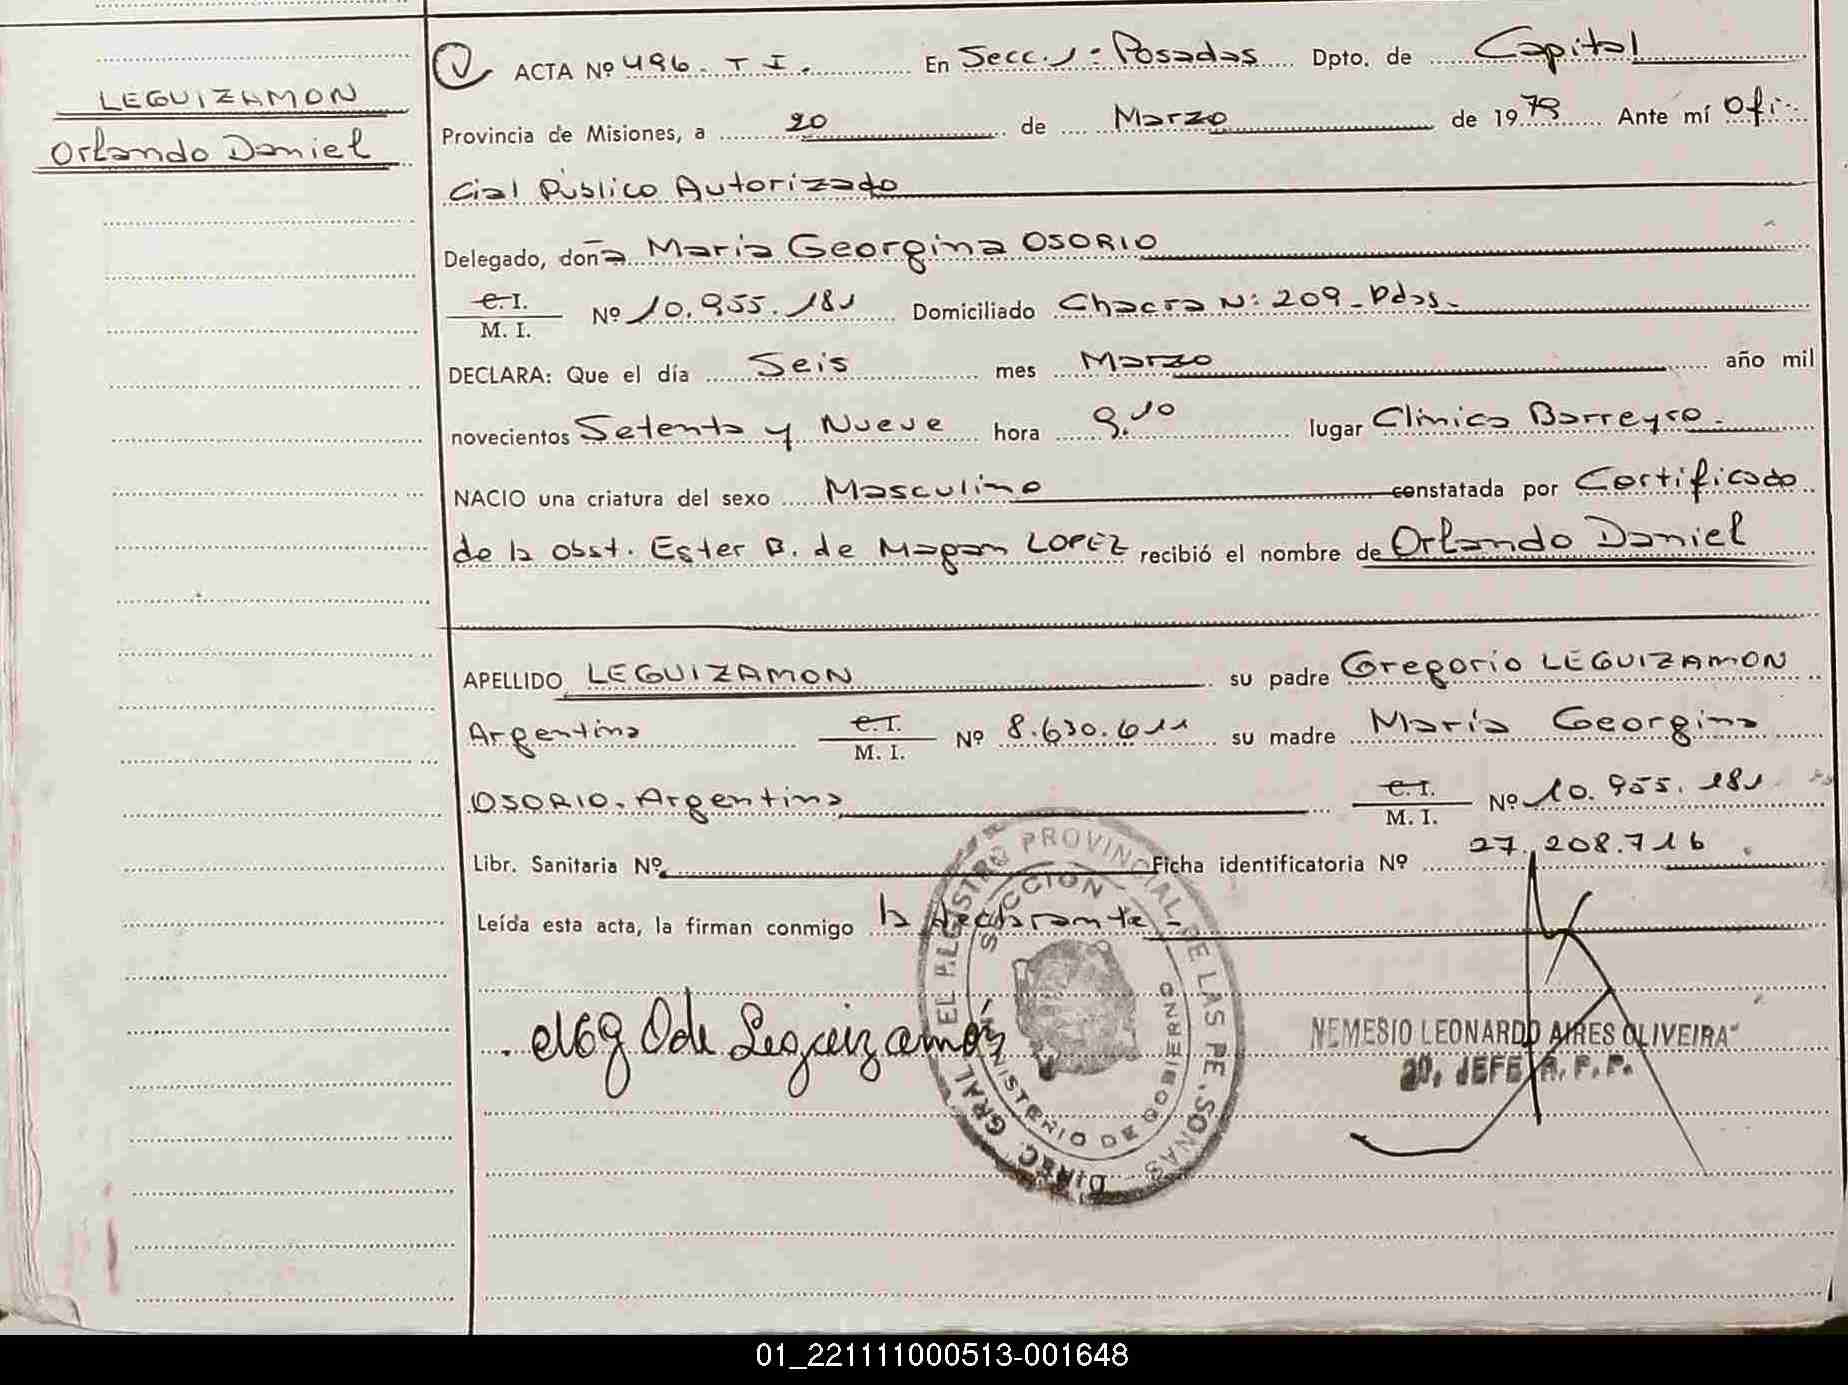 LEGUIZAMON
Orlando Daniel
ACTA Nº 496. T I. En Secc. 1: Posadas Dpto. de Capital
Provincia de Misiones, a 20 de Marzo de 1979 Ante mí Ofi-
cial Público Autorizado
Delegado, doña Maria Georgina OSORIO
C. I.
M. I.
Nº 10.955.181 Domiciliado Chacra N: 209 - Pdas.-
DECLARA: Que el día Seis mes Marzo año mil
novecientos Setenta y Nueve hora 9.10 lugar Clinica Barreyro.
NACIO una criatura del sexo Masculino constatada por Certificado
de la Obst. Ester B. de Magan LOPEZ recibió el nombre de Orlando Daniel
APELLIDO LEGUIZAMON su padre Gregorio LEGUIZAMON
Argentino C. I. M. I. Nº 8.630.611 su madre María Georgina
OSORIO. Argentina C. I. M. I. Nº 10.955.181
Libr. Sanitaria Nº Ficha identificatoria Nº 27.208.716
Leída esta acta, la firman conmigo la declarante-
O de Leguizamón
DIREC. GRAL. DEL REGISTRO PROVINCIAL DE LAS PERSONAS
SECCION
MINISTERIO DE GOBIERNO
NEMESIO LEONARDO AIRES OLIVEIRA
2º. JEFE R. P. P.
01_221111000513-001648